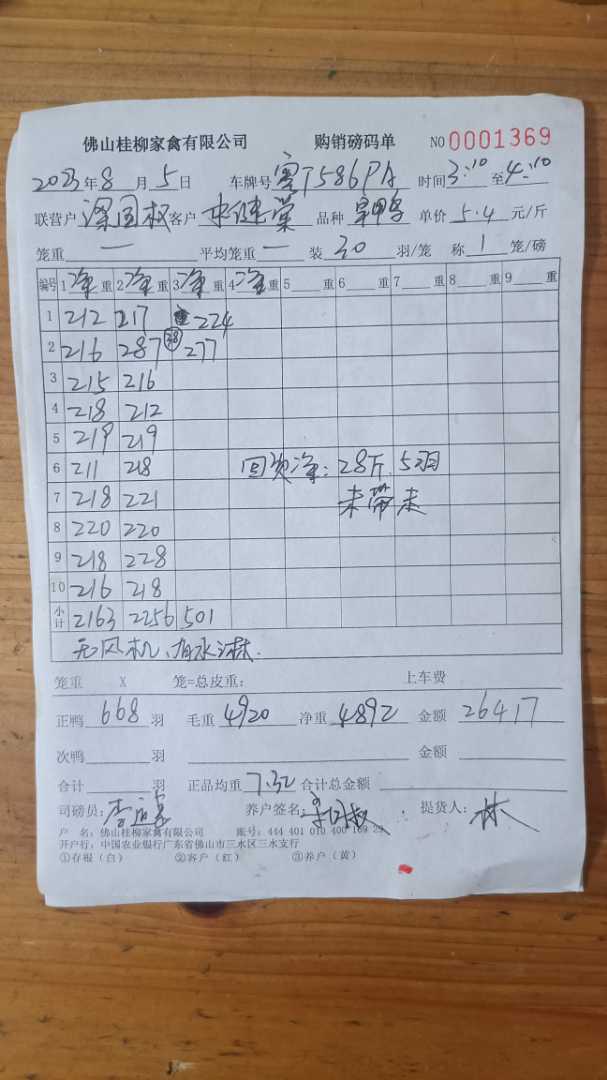 佛山桂柳家禽有限公司 购销磅码单 NO 0001369
2023年8月5日 车牌号 粤T586PA 时间 3:10 至 4:10
联营户 梁国权 客户 林健荣 品种 单价 5.4 元/斤
笼重 一 平均笼重 一 装 30 羽/笼 称 1 笼/磅
编号 1 净 重 2 净 重 3 净 重 4 净 重 5 重 6 重 7 重 8 重 9 重
1 212 217 224
2 216 287 28 277
3 215 216
4 218 212
5 219 219
6 211 218 回资净：28斤 5羽
7 218 221 未带走
8 220 220
9 218 228
10 216 218
小计 2163 2256 501
无风机、有水淋.
笼重 X 笼=总皮重： 上车费
正鸭 668 羽 毛重 4920 净重 4892 金额 26417
次鸭 羽 金额
合计 羽 正品均重 7.32 合计总金额
司磅员： 养户签名： 提货人：林
户 名：佛山桂柳家禽有限公司 账号：444 401 010 400 169 29
开户行：中国农业银行广东省佛山市三水区三水支行
①存根（白） ②客户（红） ③养户（黄）